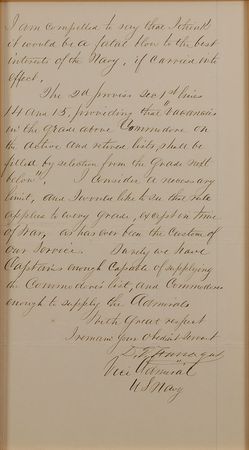 I am compelled to say that I think
it would be a fatal blow to the best
interests of the Navy, if carried into
effect.
The 2d proviso Sec 1st lines
14 and 15, providing that "Vacancies
in the grade above Commodore on
the active and retired lists, shall be
filled by selection from the grade next
below". I consider a necessary
limit, and I would like to see the rule
applied to every grade, except in time
of War, as has ever been the custom of
our Service. Surely we have
Captains enough Capable of supplying
the Commodores list, and Commodores
enough to supply the Admirals
With Great respect
I remain Your Obedient Servant
D. G. Farragut
Vice Admiral
U S Navy